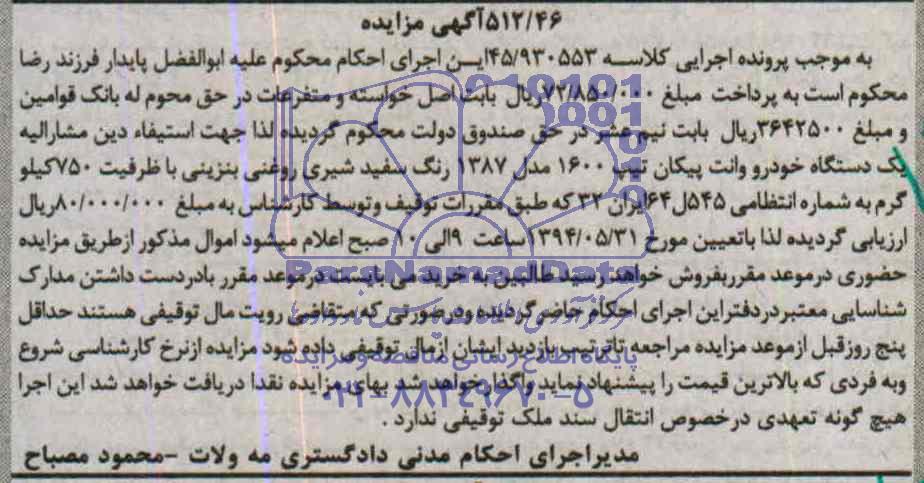 ۵۱۲/۴۶آگهی مزایده
به موجب پرونده اجرایی کلاسه ۴۵/۹۳۰۵۵۳این اجرای احکام محکوم علیه ابوالفضل پایدار فرزند رضا
محکوم است به پرداخت مبلغ ۷۲/۸۵۰/۰۰۰ریال بابت اصل خواسته و متفرعات در حق محوم له بانک قوامین
و مبلغ ۳۶۴۲۵۰۰ریال بابت نیم عشر در حق صندوق دولت محکوم گردیده لذا جهت استیفاء دین مشارالیه
یک دستگاه خودرو وانت پیکان تیپ ۱۶۰۰ مدل ۱۳۸۷ رنگ سفید شیری روغنی بنزینی با ظرفیت ۷۵۰کیلو
گرم به شماره انتظامی ۵۴۵ل۶۴ایران ۳۲ که طبق مقررات توقیف وتوسط کارشناس به مبلغ ۸۰/۰۰۰/۰۰۰ریال
ارزیابی گردیده لذا باتعیین مورخ ۱۳۹۴/۰۵/۳۱ساعت ۹الی ۱۰ صبح اعلام میشود اموال مذکور ازطریق مزایده
حضوری درموعد مقرربفروش خواهد رسید طالبین به خرید می بایست درموعد مقرر بادردست داشتن مدارک
شناسایی معتبردردفتراین اجرای احکام حاضرگردیده ودرصورتی که متقاضی رویت مال توقیفی هستند حداقل
پنج روزقبل ازموعد مزایده مراجعه تاترتیب بازدید ایشان ازمال توقیفی داده شود مزایده ازنرخ کارشناسی شروع
وبه فردی که بالاترین قیمت را پیشنهاد نماید واگذارخواهد شد بهای مزایده نقدا دریافت خواهد شد این اجرا
هیچ گونه تعهدی درخصوص انتقال سند ملک توقیفی ندارد .
مدیراجرای احکام مدنی دادگستری مه ولات -محمود مصباح
ParsNamadData
پایگاه اطلاع رسانی مناقصه و مزایده
۰۲۱-۸۸۳۴۹۶۷۰-۵